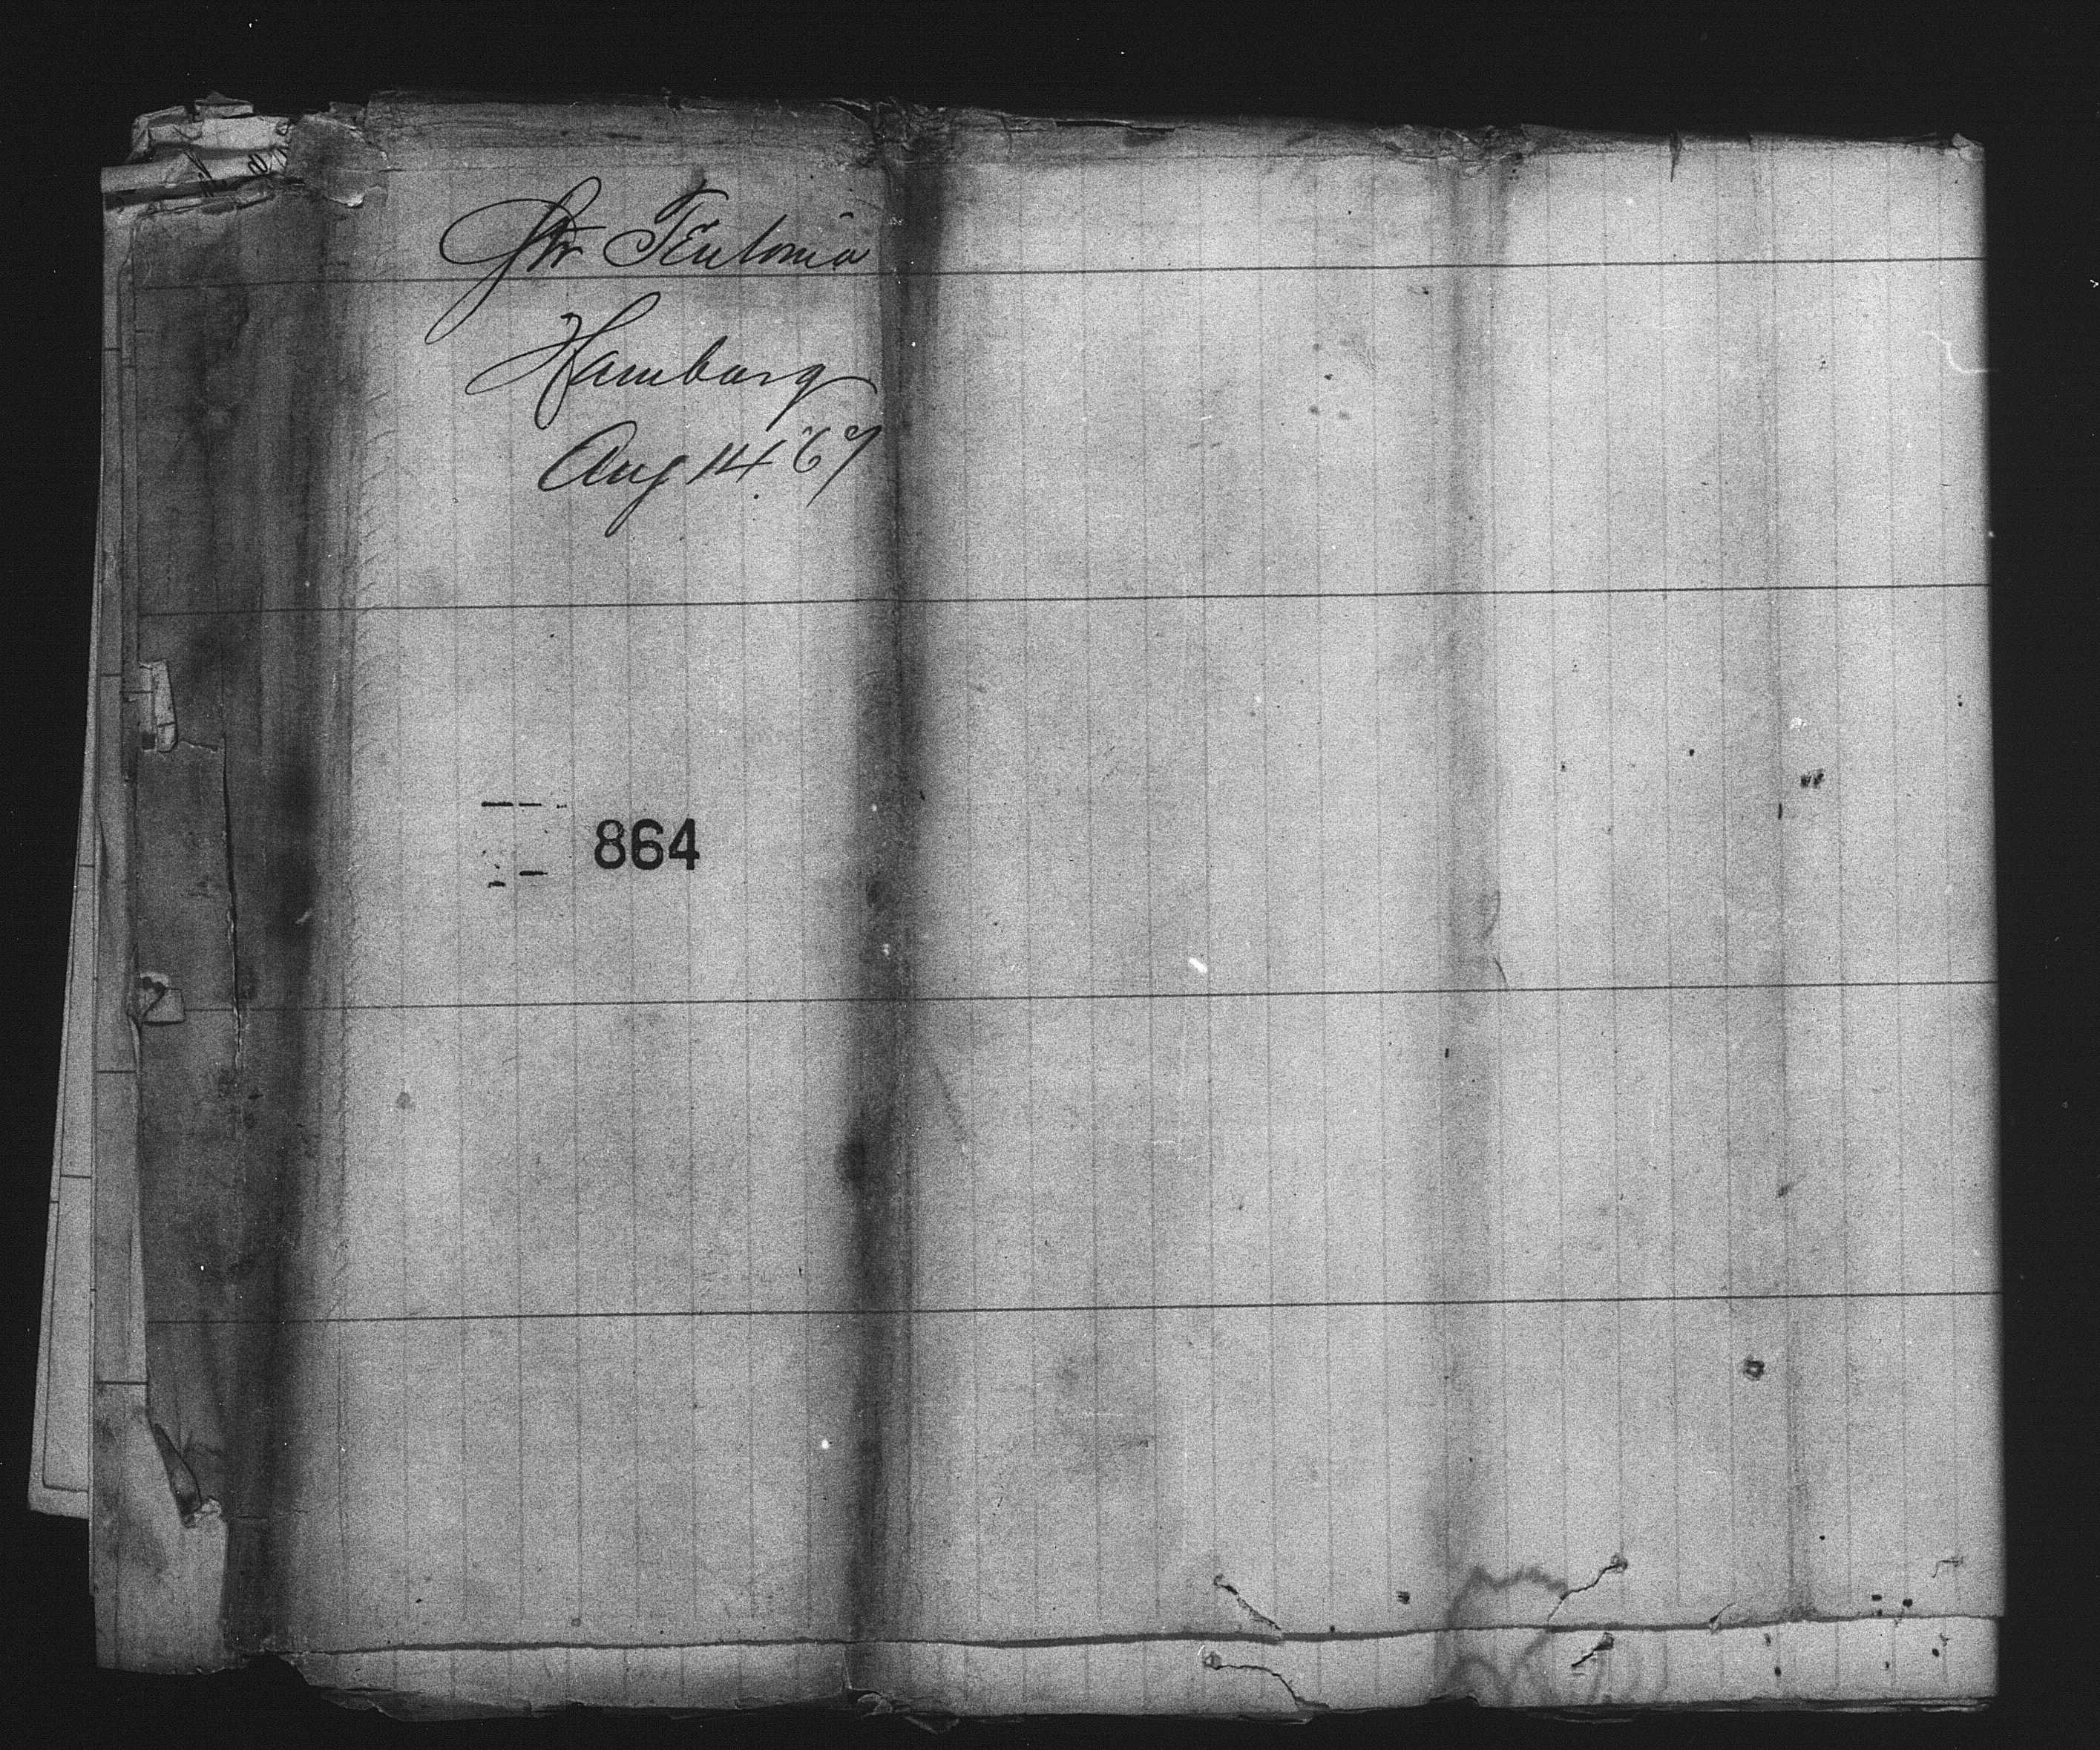 Str Teutonia
Hamburg
Aug 14 '67
864